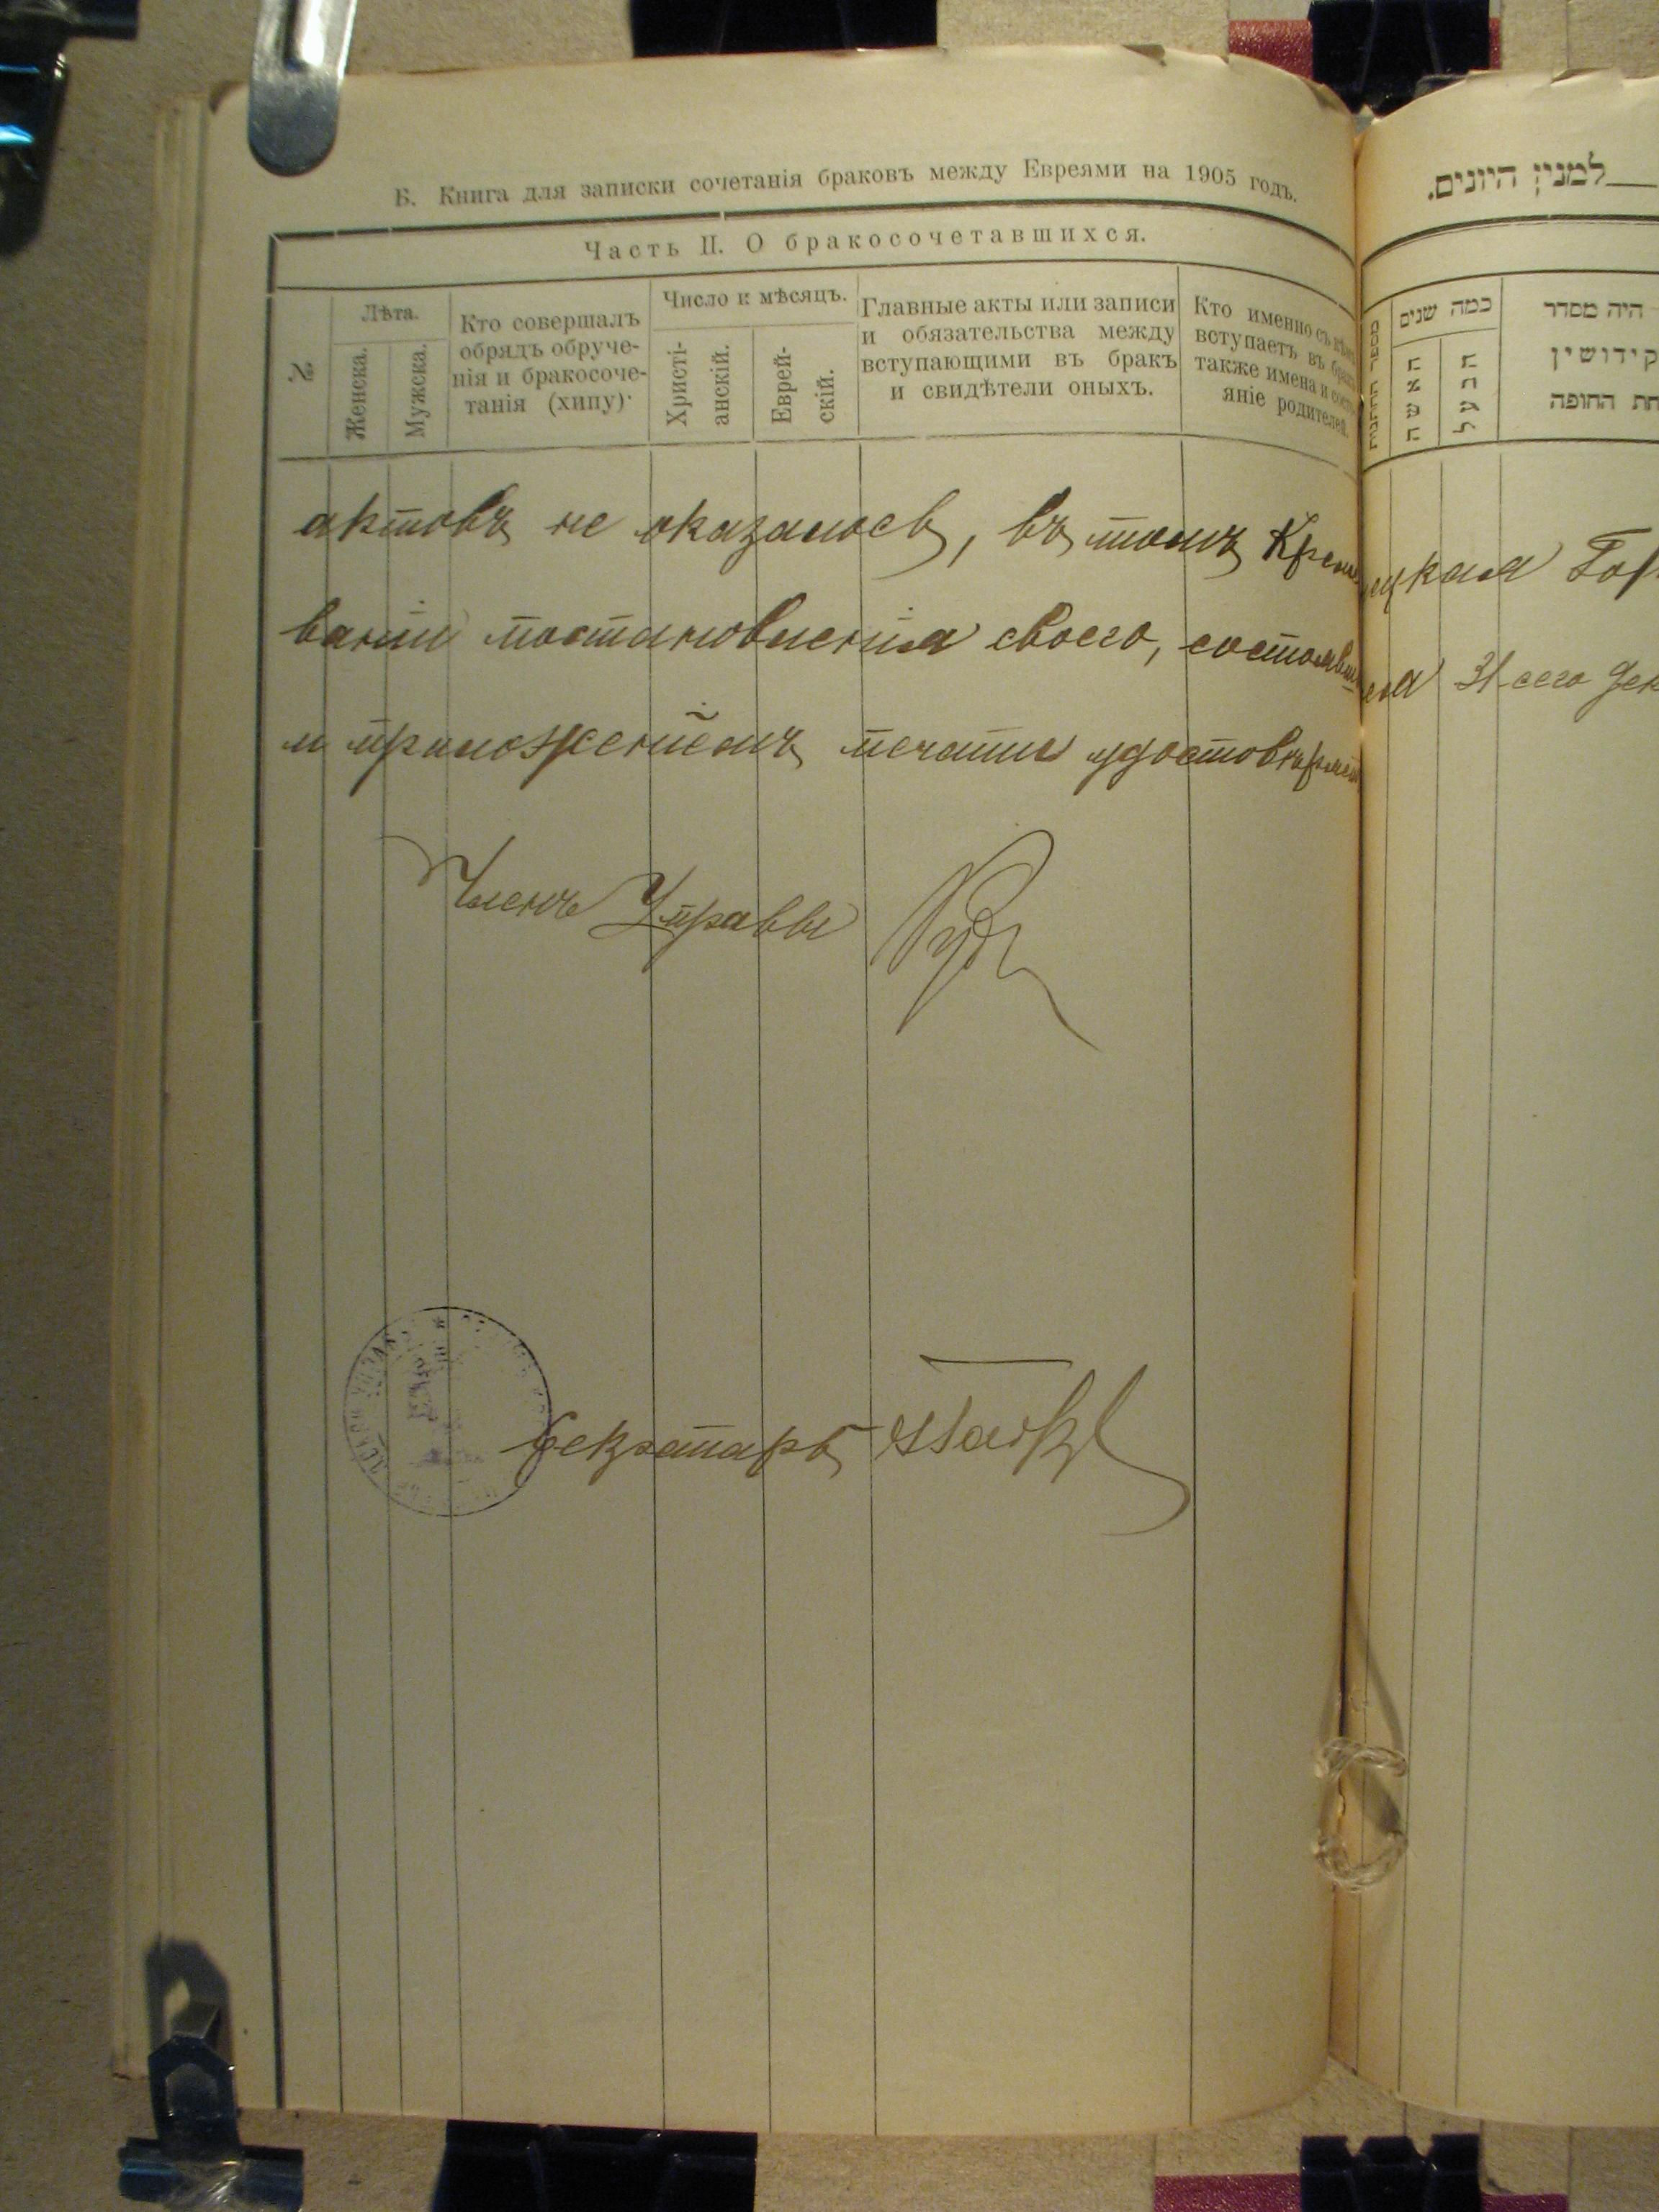 Б. Книга для записки сочетанія браковъ между Евреями на 1905 годъ.
Часть II. О бракосочетавшихся.
№
Лѣта.
Женска.
Мужска.
Кто совершалъ
обрядъ обруче-
нія и бракосоче-
танія (хипу)·
Число и мѣсяцъ.
Христі-
анскій.
Еврей-
скій.
Главные акты или записи
и обязательства между
вступающими въ бракъ
и свидѣтели оныхъ.
Кто именно съ кѣмъ
вступаетъ въ бракъ
также имена и состо-
яніе родителей.
актовъ не оказалось, въ томъ
вании постановленія своего,
и приложеніемъ печати
Членъ Управы
Секретарь
למנין היונים.
מספר החתונות
כמה שנים
האשה
הבעל
היה מסדר
קידושין
החופה
31 сего